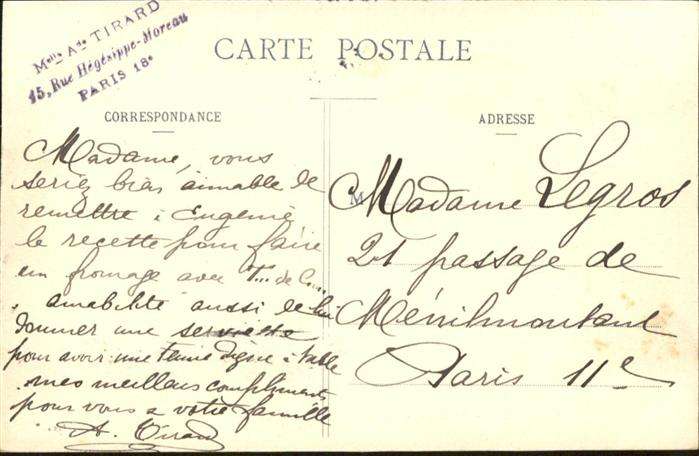 Melle Ate TIRARD
15, Rue Hégésippe-Moreau
PARIS 18e
CARTE POSTALE
CORRESPONDANCE
ADRESSE
Madame, vous
seriez bien aimable de
remettre à Eugénie
la recette pour faire
un fromage avec T... de C...
amabilité aussi de lui
donner une serviette
pour avoir une tenue digne à table
mes meilleurs compliments
pour vous a votre famille
A. Tirard
M
Madame Legros
21 passage de
Ménilmontant
Paris 11e